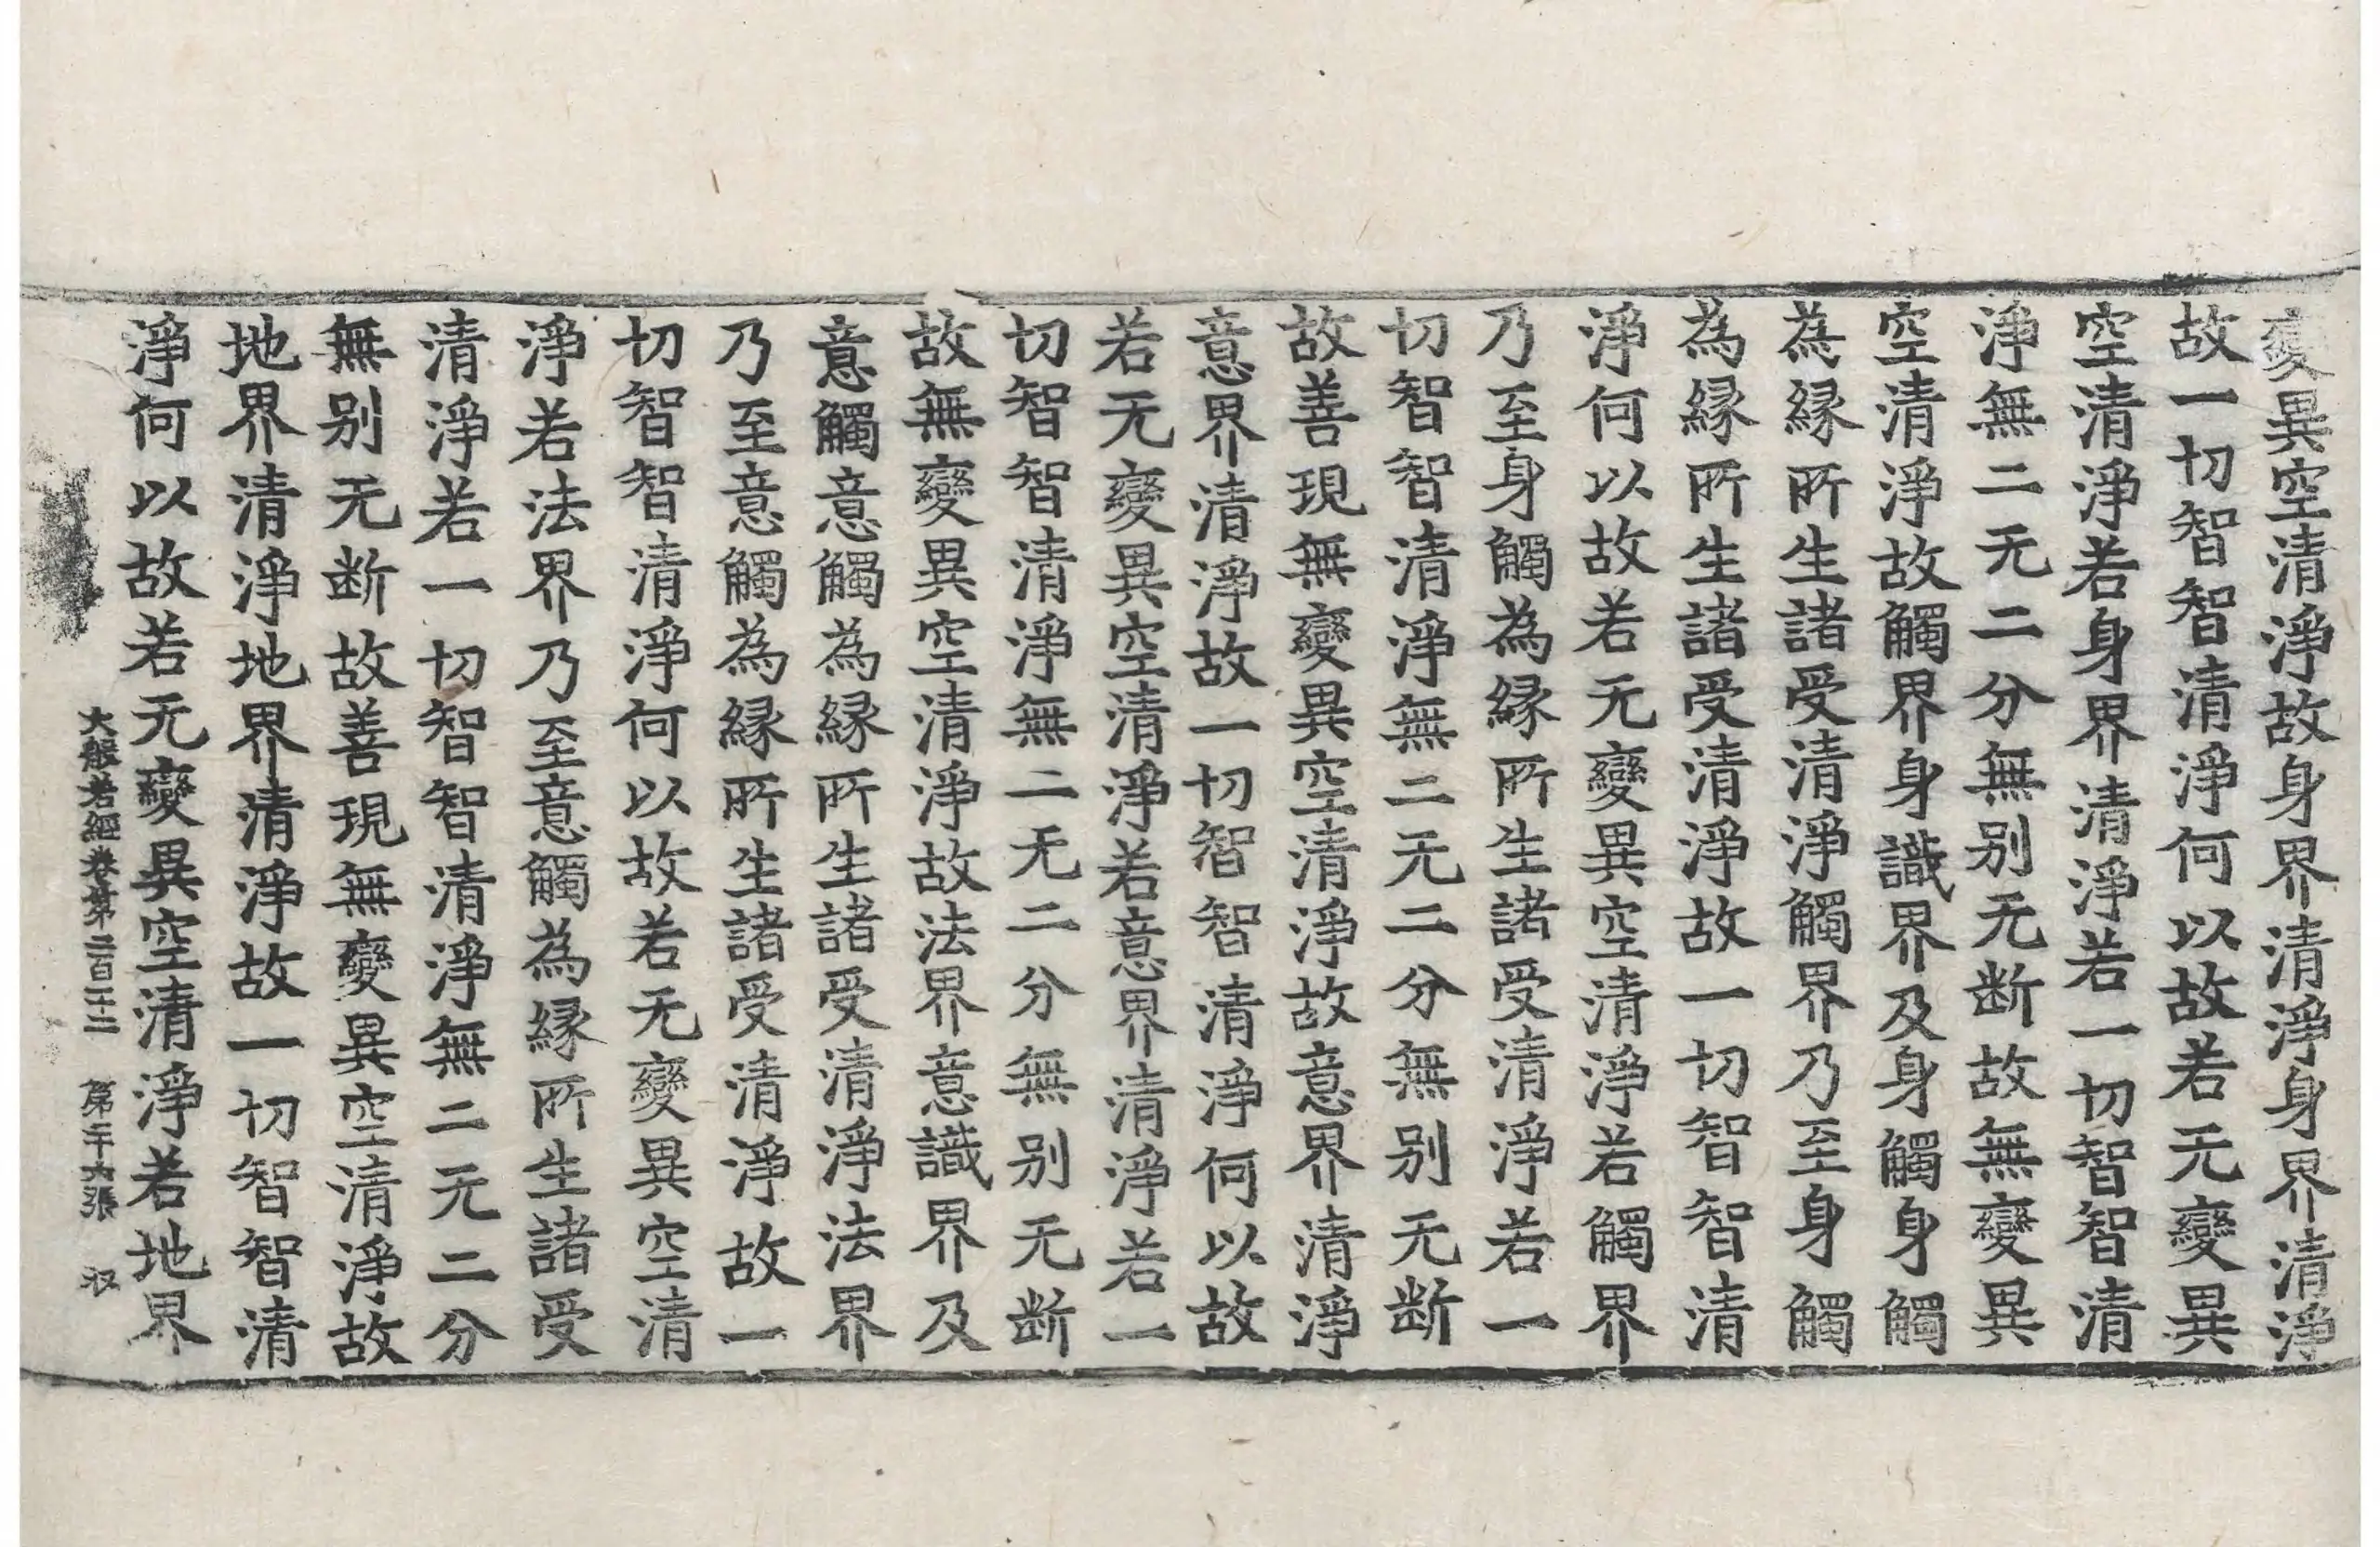 變異空清淨故身界清淨身界清淨
故一切智智清淨何以故若无變異
空清淨若身界清淨若一切智智清
淨無二无二分無别无断故無變異
空清淨故觸界身識界及身觸身觸
為縁所生諸受清淨觸界乃至身觸
為縁所生諸受清淨故一切智智清
淨何以故若无變異空清淨若觸界
乃至身觸為縁所生諸受清淨若一
切智智清淨無二无二分無别无断
故善現無變異空清淨故意界清淨
意界清淨故一切智智清淨何以故
若无變異空清淨若意界清淨若一
切智智清淨無二无二分無别无断
故無變異空清淨故法界意識界及
意觸意觸為縁所生諸受清淨法界
乃至意觸為縁所生諸受清淨故一
切智智清淨何以故若无變異空清
淨若法界乃至意觸為縁所生諸受
清淨若一切智智清淨無二无二分
無别无断故善現無變異空清淨故
地界清淨地界清淨故一切智智清
淨何以故若无變異空清淨若地界
大般若經卷第二百一十二 第二十六張 収